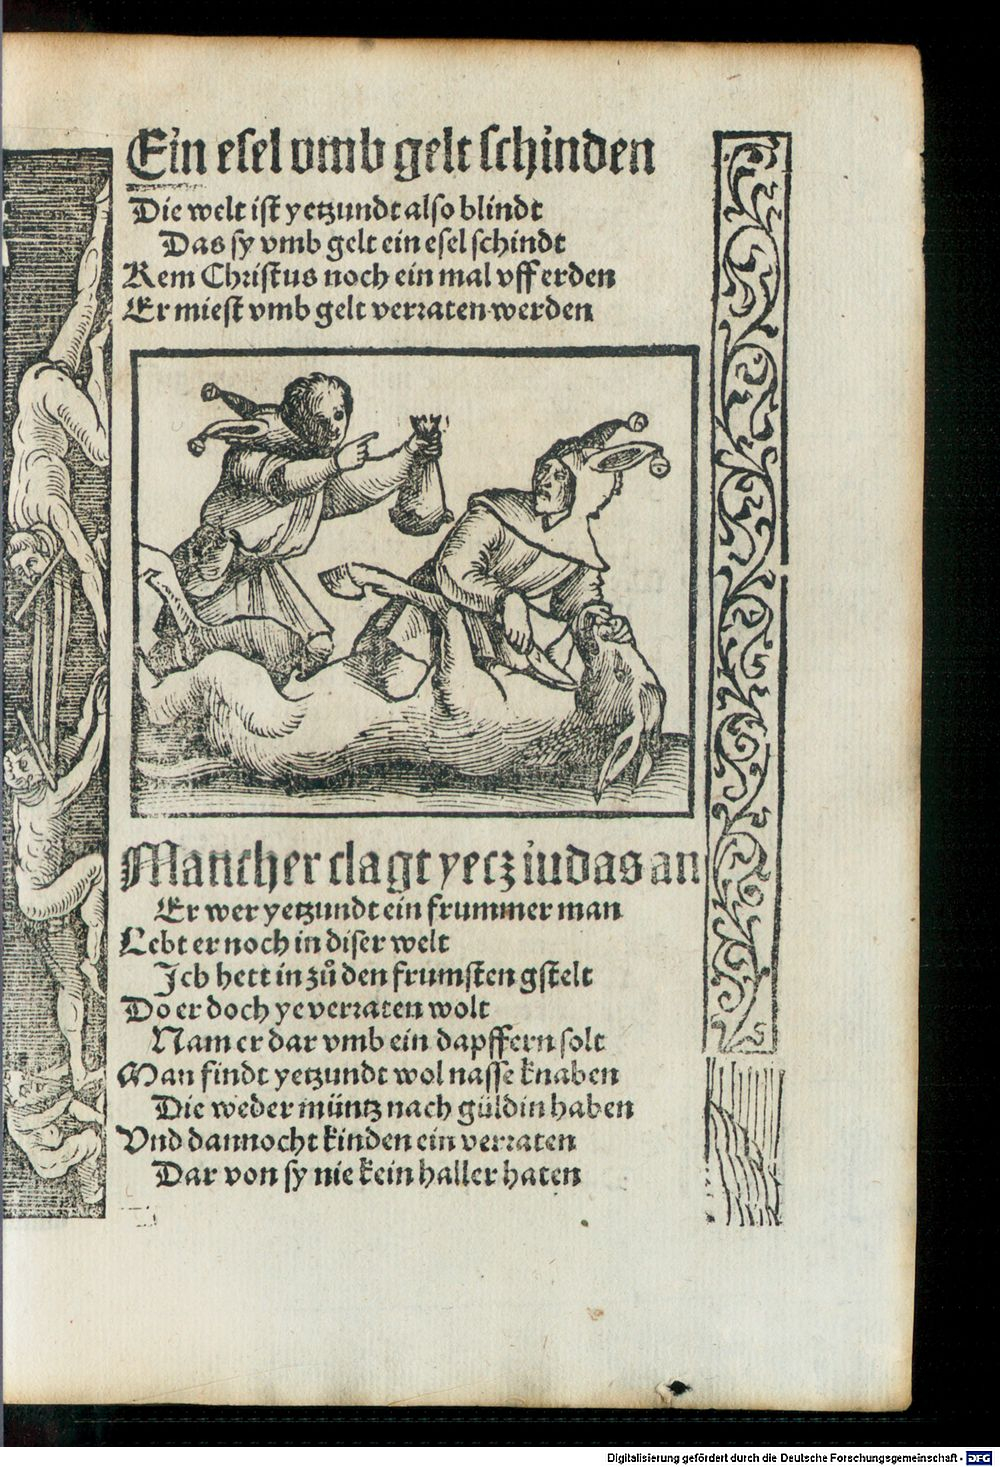 Ein esel vmb gelt schinden
Die welt ist yetzundt also blindt
Das sy vmb gelt ein esel schindt
Kem Christus noch ein mal vff erden
Er miest vmb gelt verraten werden
Mancher clagt yetz iudas an
Er wer yetzundt ein frummer man
Lebt er noch in diser welt
Ich hett in zů den frumsten gstelt
Do er doch ye verraten wolt
Nam er dar vmb ein dapffern solt
Man findt yetzundt wol nasse knaben
Die weder müntz nach güldin haben
Vnd dannocht kinden ein verraten
Dar von sy nie kein haller haten
Digitalisierung gefördert durch die Deutsche Forschungsgemeinschaft - DFG